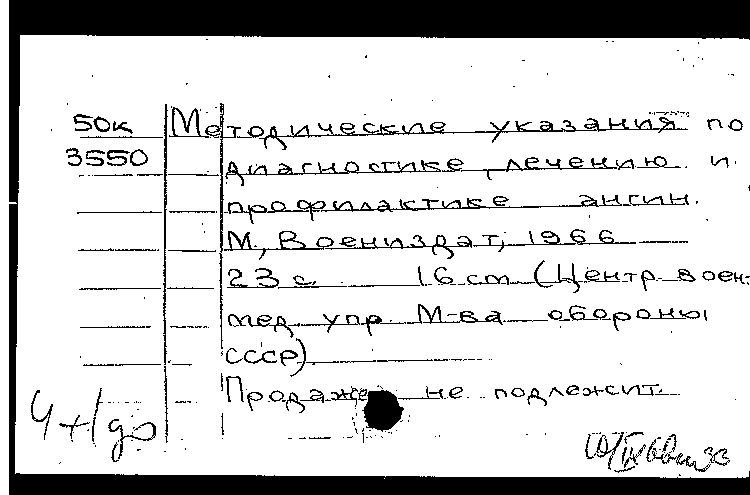 50к Методические указания по
3550 диагностике, лечению и
профилактике ангин.
М., Воениздат, 1966
23 с. 16 cm (Центр. воен-
мед. упр. М-ва обороны
СССР)
Продаже не подлежит.